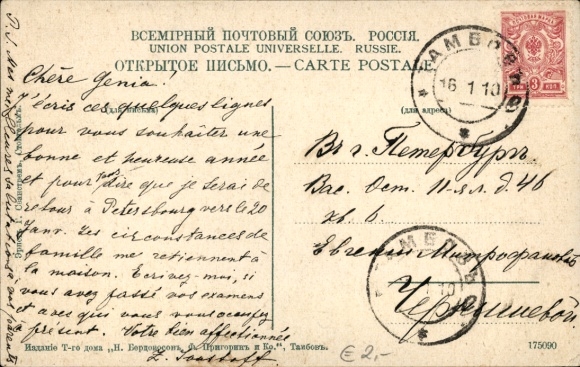 ВСЕМІРНЫЙ ПОЧТОВЫЙ СОЮЗЪ. РОССІЯ.
UNION POSTALE UNIVERSELLE. RUSSIE.
ОТКРЫТОЕ ПИСЬМО. — CARTE POSTALE
ТАМБОВЪ
16 1 10
3 КОП.
(для адреса)
Chère Genia!
J'écris ces quelques lignes
pour vous souhaiter une
bonne et heureuse année
et pour dire que je serai de
retour à Petersbourg vers le 20
Janv. Les circonstances de
famille me retiennent à
la maison. Ecrivez-moi, si
vous avez passé vos examens
et à quoi vous vous occupez
à présent. Votre bien affectionnée
Въ г. Петербургъ.
Вас. Ост. 11-я л. д. 46
кв. 6.
Евгеніи Митрофановнѣ
Чернышевой
ТАМБОВЪ
1 10
P.S. Mes meilleures salutations à vos parents
Изданіе Т-го дома „Н. Бордоносовъ, Ф. Пригоринъ и Ко.", Тамбовъ.
175090
€ 2,-